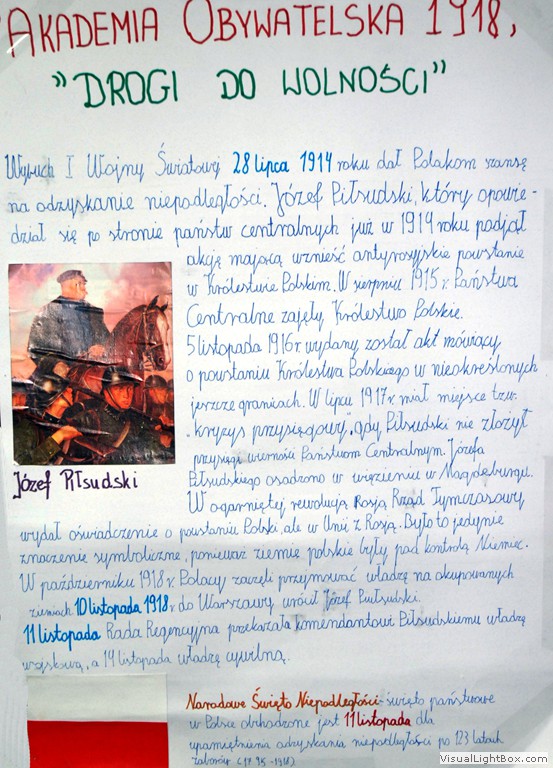 "AKADEMIA OBYWATELSKA 1918,
"DROGI DO WOLNOŚCI"
Wybuch I Wojny Światowej 28 lipca 1914 roku dał Polakom szansę
na odzyskanie niepodległości. Józef Piłsudski, który opowie-
dział się po stronie państw centralnych już w 1914 roku podjął
akcję mającą wznieść antyrosyjskie powstanie
w Królestwie Polskim. W sierpniu 1915 r. Państwa
Centralne zajęły Królestwo Polskie.
5 listopada 1916 r. wydany został akt mówiący
o powstaniu Królestwa Polskiego w nieokreślonych
jeszcze granicach. W lipcu 1917 r. miał miejsce tzw.
"kryzys przysięgowy", gdy Piłsudski nie złożył
przysięgi wierności Państwom Centralnym. Józefa
Piłsudskiego osadzono w więzieniu w Magdeburgu.
Józef Piłsudski
W ogarniętej rewolucją Rosją Rząd Tymczasowy
wydał oświadczenie o powstaniu Polski, ale w Unii z Rosją. Było to jedynie
znaczenie symboliczne, ponieważ ziemie polskie były pod kontrolą Niemiec.
W październiku 1918 r. Polacy zaczęli przejmować władzę na okupowanych
ziemiach. 10 listopada 1918 r. do Warszawy wrócił Józef Piłsudski.
11 listopada Rada Regencyjna przekazała komendantowi Piłsudskiemu władzę
wojskową, a 14 listopada władzę cywilną.
Narodowe Święto Niepodległości - święto państwowe
w Polsce obchodzone jest 11 listopada dla
upamiętnienia odzyskania niepodległości po 123 latach
zaborów (1795-1918).
VisualLightBox.com